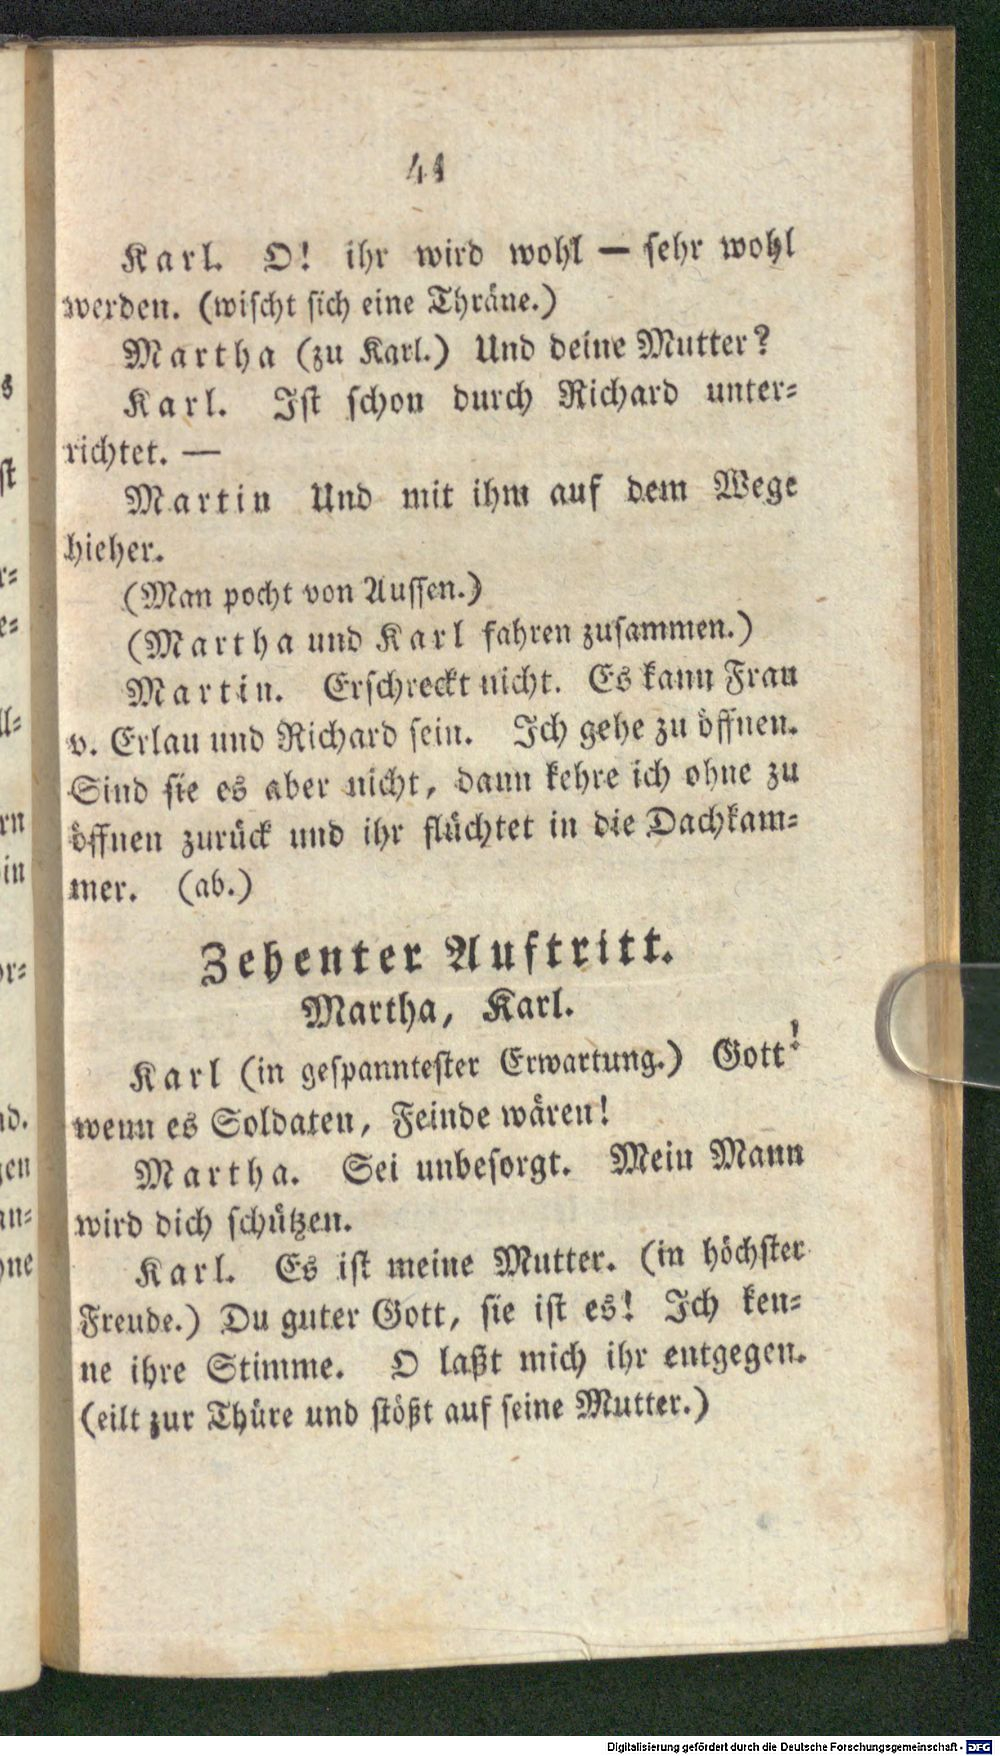 41
Karl. O! ihr wird wohl — sehr wohl
werden. (wischt sich eine Thräne.)
Martha (zu Karl.) Und deine Mutter?
Karl. Ist schon durch Richard unter-
richtet. —
Martin Und mit ihm auf dem Wege
hieher.
(Man pocht von Aussen.)
(Martha und Karl fahren zusammen.)
Martin. Erschreckt nicht. Es kann Frau
v. Erlau und Richard sein. Ich gehe zu öffnen.
Sind sie es aber nicht, dann kehre ich ohne zu
öffnen zurück und ihr flüchtet in die Dachkam-
mer. (ab.)
Zehenter Auftritt.
Martha, Karl.
Karl (in gespanntester Erwartung.) Gott!
wenn es Soldaten, Feinde wären!
Martha. Sei unbesorgt. Mein Mann
wird dich schützen.
Karl. Es ist meine Mutter. (in höchster
Freude.) Du guter Gott, sie ist es! Ich ken-
ne ihre Stimme. O laßt mich ihr entgegen.
(eilt zur Thüre und stößt auf seine Mutter.)
Digitalisierung gefördert durch die Deutsche Forschungsgemeinschaft - DFG